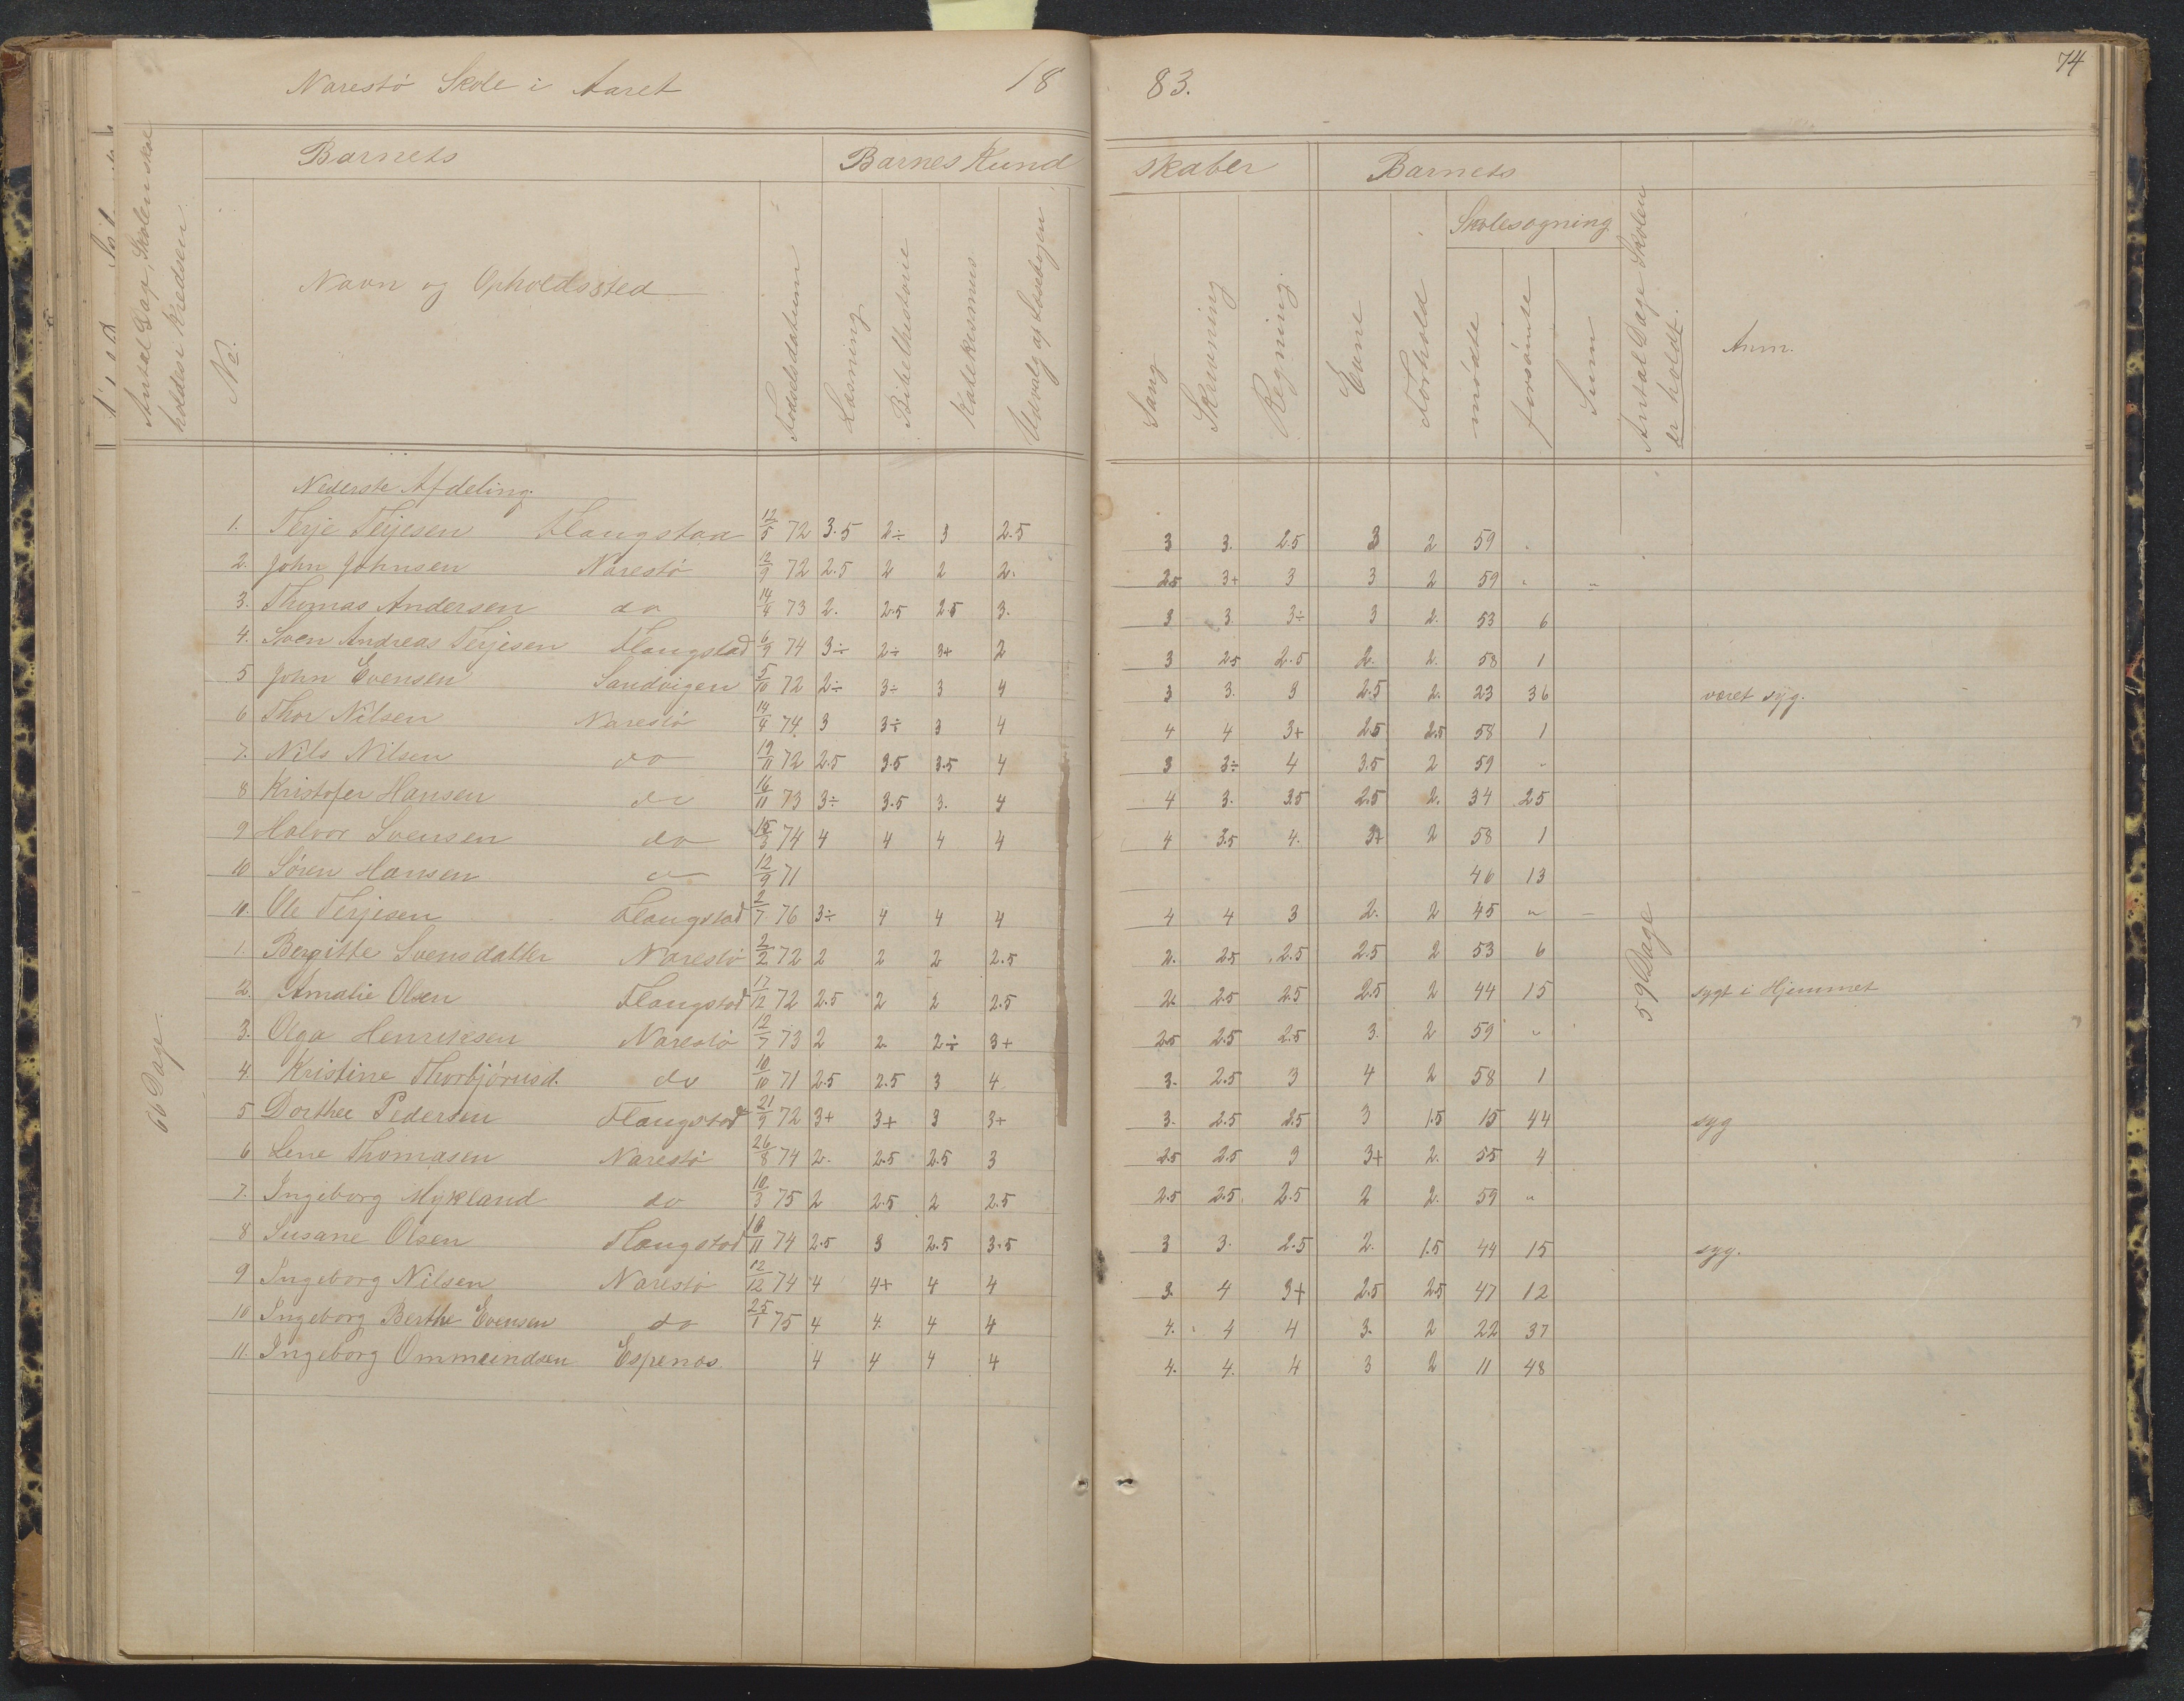 74
Narestö Skole i Aaret 18 83.
Barnets Barnes Kund skaber Barnets
Antal Dage, Skolen skal holdes i Kredsen
No.
Navn og Opholdssted
Födselsdatum
Læsning
Bibelhistorie
Katekismus
Udvalg af Læsebogen
Sang
Skrivning
Regning
Evne
Forhold
Skolesøgning
mödte
forsömte
Sum
Antal Dage Skolen er holdt.
Anm.
Nederste Afdeling.
1. Terje Terjesen Flangstaa 12/5 72 3.5 2÷ 3 2.5 3 3. 2.5 3 2 59 "
2. John Johnsen Narestö 12/9 72 2.5 2 2 2. 2.5 3+ 3 3 2 59 " "
3. Thomas Andersen do 14/4 73 2. 2.5 2.5 3. 3 3. 3÷ 3 2. 53 6
4. Sven Andreas Terjesen Flangstad 6/9 74 3÷ 2÷ 3+ 2 3 2.5 2.5 2. 2. 58 1
5 John Evensen Sandvigen 5/10 72 2÷ 3÷ 3 4 3 3. 3 2.5 2. 23 36 været syg.
6 Thor Nilsen Narestö 14/4 74 3 3÷ 3 4 4 4 3+ 2.5 2.5 58 1
7. Nils Nilsen do 19/11 72 2.5 3.5 3.5 4 3 3÷ 4 3.5 2 59 "
8 Kristofer Hansen do 16/11 73 3÷ 3.5 3. 4 4 3. 3.5 2.5 2. 34 25
9 Halvor Svensen do 15/3 74 4 4 4 4 4 3.5 4. 3+ 2 58 1
10 Sören Hansen do 12/9 71 46 13
10. Ole Terjesen Flangstad 2/7 76 3÷ 4 4 4 4 4 3 2. 2 45 " —
1. Bergitte Svensdatter Narestö 2/2 72 2 2 2 2.5 2. 2.5 2.5 2.5 2 53 6
2. Amalie Olsen Flangstad 17/12 72 2.5 2 2 2.5 2. 2.5 2.5 2.5 2 44 15 sygt i Hjemmet
3. Olga Henriksen Narestö 12/7 73 2 2 2÷ 3+ 2.5 2.5 2.5 3. 2 59 "
4. Kristine Thorbjörnsd. do 10/10 71 2.5 2.5 3 4 3. 2.5 3 4 2 58 1
5 Dorthee Pedersen Flangstad 21/9 72 3+ 3+ 3 3+ 3. 2.5 2.5 3 1.5 15 44 syg
6 Lene Thomasen Narestö 26/8 74 2. 2.5 2.5 3 2.5 2.5 3 3+ 2. 55 4
7. Ingeborg Mykland do 10/3 75 2 2.5 2 2.5 2.5 2.5 2.5 2 2. 59 "
8 Susane Olsen Flangstad 18/11 74 2.5 3 2.5 3.5 3 3. 2.5 2. 1.5 44 15 syg.
9 Ingeborg Nilsen Narestö 12/12 74 4 4+ 4 4 3. 4 3+ 2.5 2.5 47 12
10 Ingeborg Berthe Evensen do 25/1 75 4 4. 4 4 4. 4 4 3. 2 22 37
11. Ingeborg Ommundsen Espenæs. 4 4 4 4 4. 4. 4 3 2 11 48
66 Dage.
59 Dage